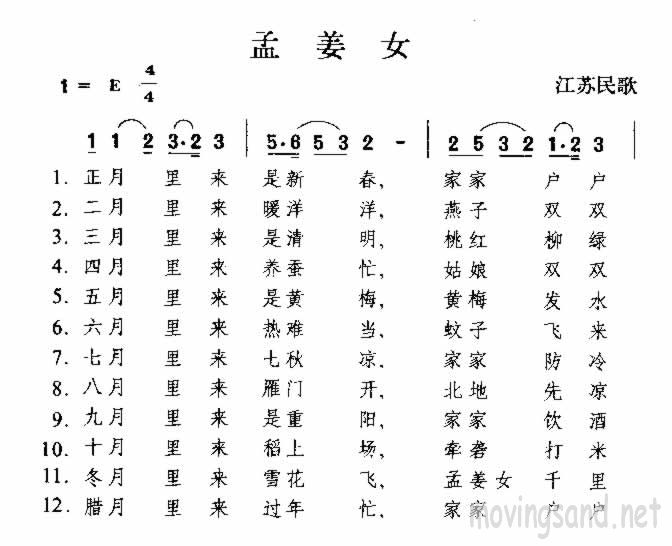 孟姜女
1 = E 4/4 江苏民歌
1 1 2 3·2 3 | 5·6 5 3 2 - | 2 5 3 2 1·2 3 |
1. 正月 里 来 是新 春, 家家 户 户
2. 二月 里 来 暖洋 洋, 燕子 双 双
3. 三月 里 来 是清 明, 桃红 柳 绿
4. 四月 里 来 养蚕 忙, 姑娘 双 双
5. 五月 里 来 是黄 梅, 黄梅 发 水
6. 六月 里 来 热难 当, 蚊子 飞 来
7. 七月 里 来 七秋 凉, 家家 防 冷
8. 八月 里 来 雁门 开, 北地 先 凉
9. 九月 里 来 是重 阳, 家家 饮 酒
10. 十月 里 来 稻上 场, 牵砻 打 米
11. 冬月 里 来 雪花 飞, 孟姜女 千 里
12. 腊月 里 来 过年 忙, 家家 户 户
movingsand.net